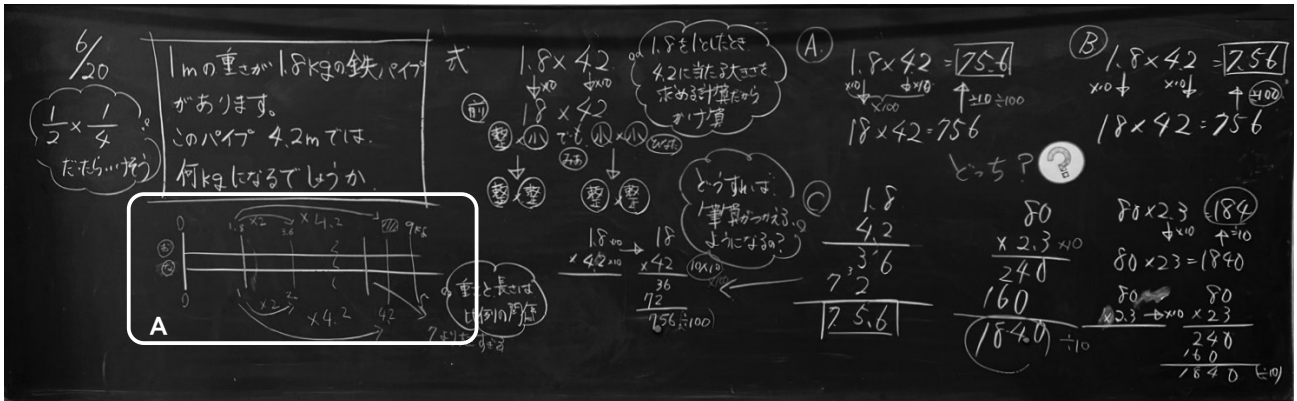 6/20
1/2 × 1/4
だったらいけそう
1mの重さが1.8kgの鉄パイプ
があります。
このパイプ4.2mでは、
何kgになるでしょうか。
0 1.8 ×2 3.6 ×4.2 9kg
お
な
0 ×2 2 ×4.2 4.2
A
重さと長さは
比例の関係
式
1.8×4.2
↓×10 ↓×10
18×42
前
整×小 でも 小×小
整×整 整×整
1.8を1としたとき
4.2に当たる大きさを
求める計算だから
かけ算
どうすれば
筆算がつかえる
ようになるの?
1.8 ×10
×4.2 ×10
→
18
×42
36
72
756
÷100
A
1.8×4.2=75.6
↓×10 ↓×10 ↑÷10 ÷100
×100
18×42=756
B
1.8×4.2=7.56
×10↓ ×10↓ ↑÷100
18×42=756
どっち?
?
C
1.8
4.2
3.6
72
75.6
80
×2.3 ×10
240
160
184.0 ÷10
80×2.3 =184
↓×10 ↑÷10
80×23=1840
80
×2.3 →×10
80
×23
240
160
1840 (÷10)